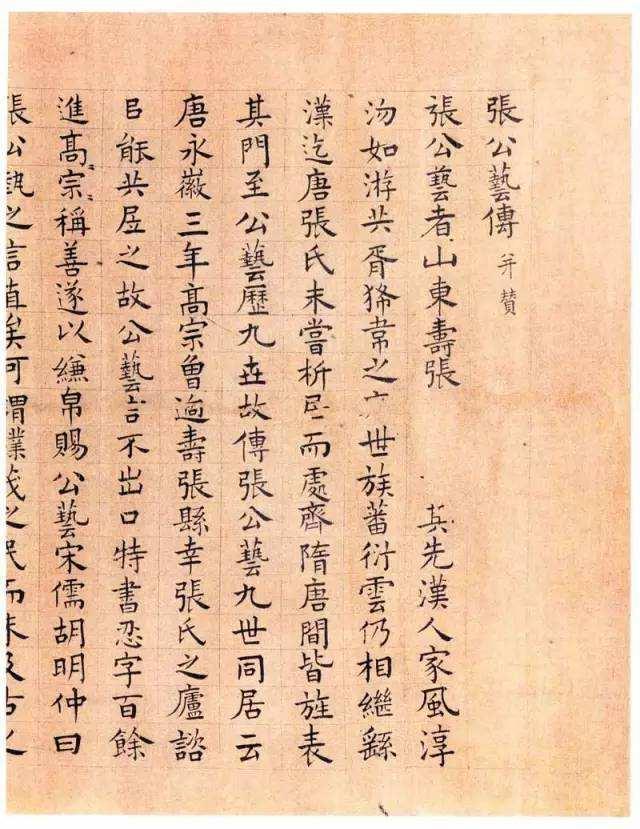 張公藝傳 并贊
張公藝者山東壽張 其先漢人家風淳
沕如游共胥狶韋之 世族蕃衍雲仍相繼繇
漢迄唐張氏未嘗析居而處齊隋唐間皆旌表
其門至公藝歷九世故傳張公藝九世同居云
唐永徽三年高宗魯過壽張縣幸張氏之廬諮
㠯能共居之故公藝言不出口特書忍字百餘
進高宗高宗稱善遂以縑帛賜公藝宋儒胡明仲曰
張公執之言直矣可謂業 之民而未及古之